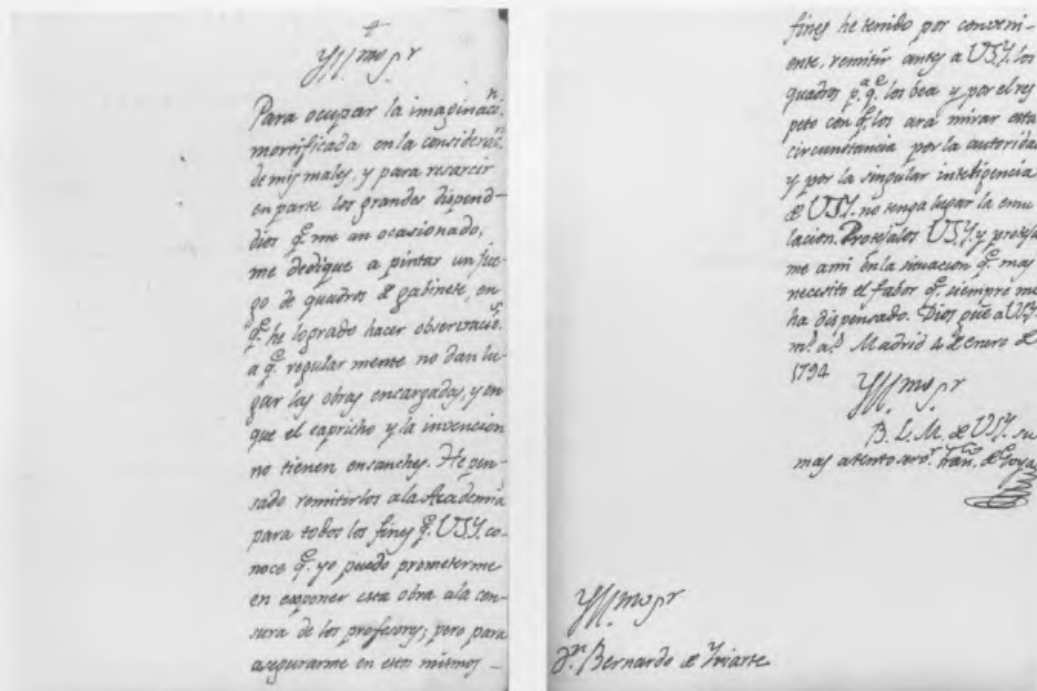 Yllmo Sr
Para ocupar la imaginacn.
mortificada en la consideracn.
de mis males, y para resarcir
en parte los grandes dispend-
dios q.e me an ocasionado,
me dedique a pintar un jue-
go de quadros de gabinete, en
q.e he logrado hacer observacios.
a q.e regular mente no dan lu-
gar las obras encargadas, y en
que el capricho y la invencion
no tienen ensanches. He pen-
sado remitirlos ala Academia
para todos los fines q.e USY. co-
noce q.e yo puedo prometerme
en exponer esta obra ala cen-
sura de los profesores; pero para
asegurarme en estos mismos -
fines he tenido por conveni-
ente, remitir antes a USY. los
quadros p.a q.e los bea y por el res
peto con q.e los ara mirar esta
circunstancia por la autoridad
y por la singular inteligencia
de USY. no tenga lugar la emu
lacion. Protejalos USY. y proteja
me ami en la situacion q.e mas
necesito el fabor q.e siempre me
ha dispensado. Dios gūe a USY.
m.s a.s Madrid 4 de Enero de
1794
Yllmo Sr
B. L. M. de USY. su
mas atento serv.r Fran.co de Goya
Yllmo Sr
D.n Bernardo de Yriarte